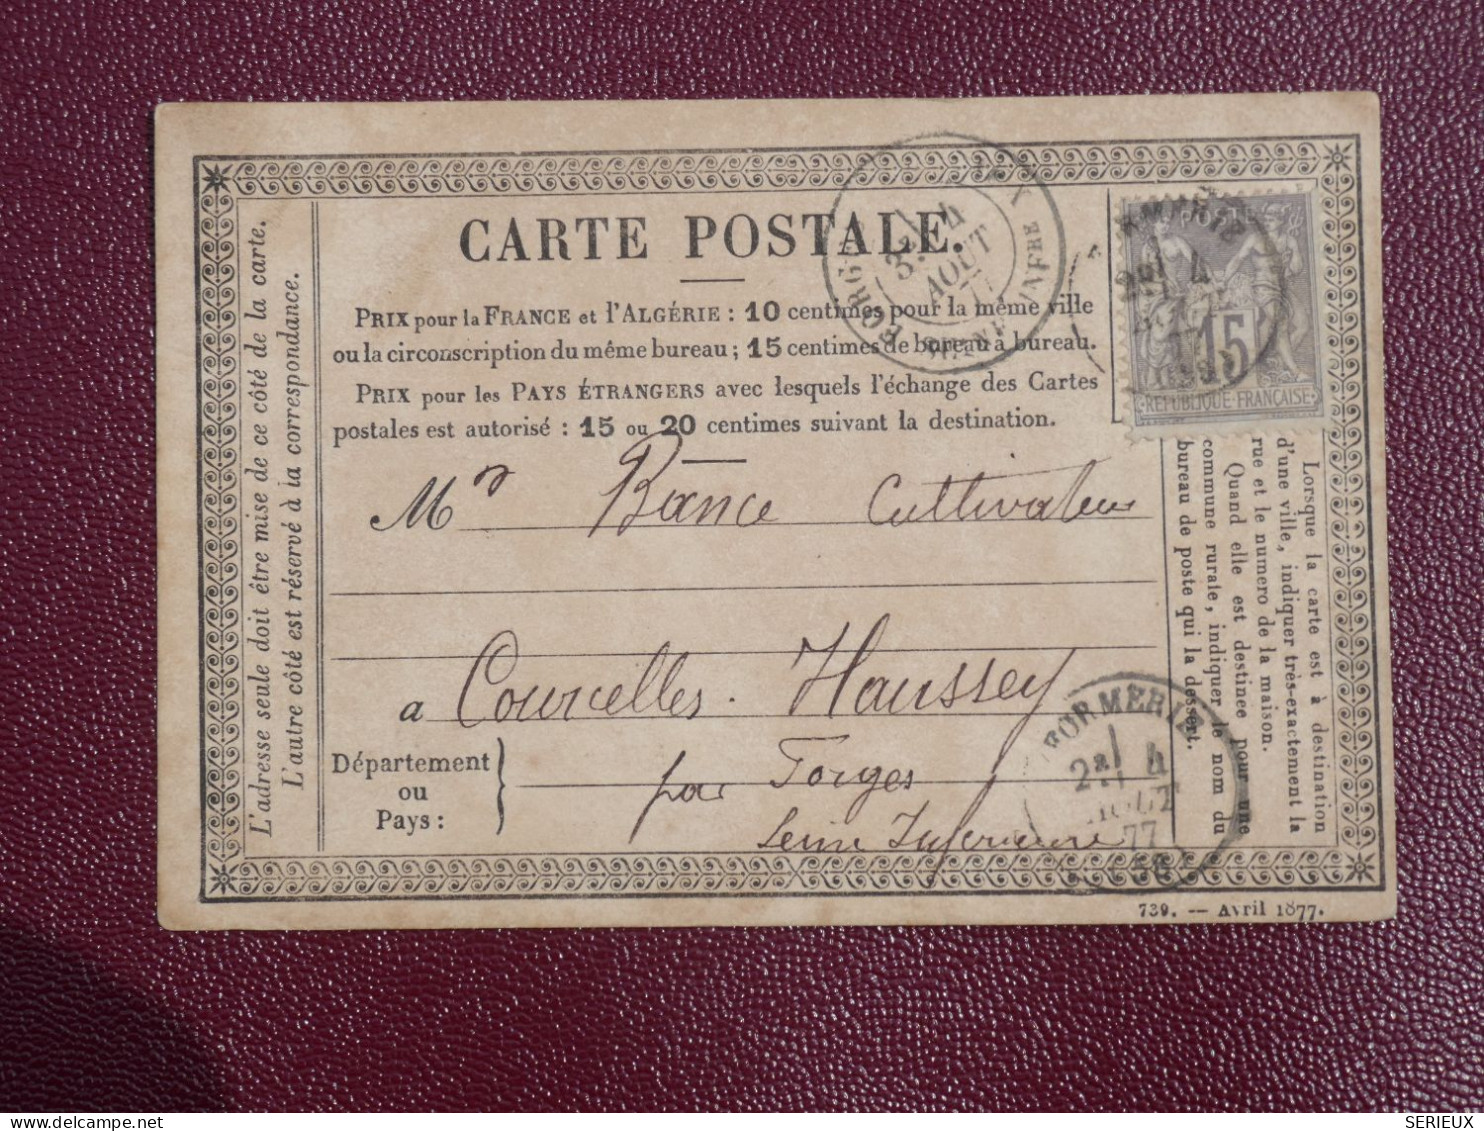 CARTE POSTALE.
PRIX pour la FRANCE et l'ALGÉRIE : 10 centimes pour la même ville
ou la circonscription du même bureau ; 15 centimes de bureau à bureau.
PRIX pour les PAYS ÉTRANGERS avec lesquels l'échange des Cartes
postales est autorisé : 15 ou 20 centimes suivant la destination.
Mr Bance Cultivateur
a Courcelles. Haussey
Département
ou
Pays :
par Forges
Seine Inférieure
L'adresse seule doit être mise de ce côté de la carte.
L'autre côté est réservé à la correspondance.
Lorsque la carte est à destination
d'une ville, indiquer très-exactement la
rue et le numero de la maison.
Quand elle est destinee pour une
commune rurale, indiquer le nom du
bureau de poste qui la dessert.
739. — Avril 1877.
15
REPUBLIQUE FRANÇAISE
4
AOUT
77
INFRE
FORMERIE
2e 4
AOUT
77
SERIEUX